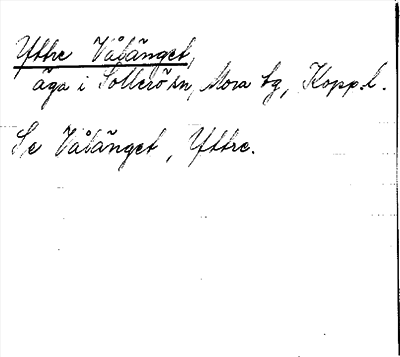 Yttre Våtänget,
äga i Sollerö sn, Mora tg, Kopp. l.
Se Våtänget, Yttre.